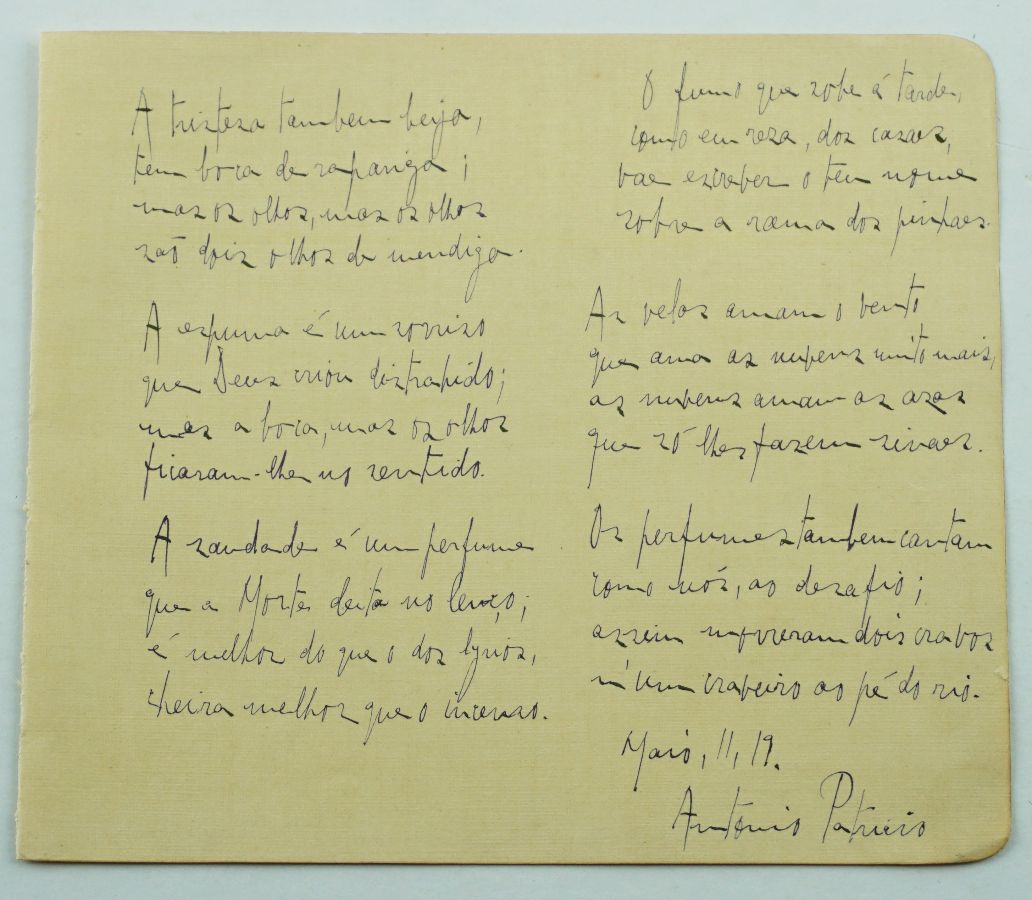 A tristeza tambem beija,
tem boca de rapariga;
mas os olhos, mas os olhos
são dois olhos de mendiga.
A espuma é um sorriso
que Deus criou distrahido;
mas a boca, mas os olhos
ficaram-lhe no sentido.
A saudade é um perfume
que a Morte deita no lenço;
é melhor do que o dos lyrios,
cheira melhor que o incenso.
O fumo que sobe á tarde,
como em reza, dos casaes,
vae escrever o teu nome
sobre a rama dos pinhaes.
As velas amam o vento
que ama as nuvens muito mais,
as nuvens amam as azas
que só lhes fazem sinaes.
Os perfumes tambem cantam
como nós, ao desafio;
assim morreram dois cravos
n'um craveiro ao pé do rio.
Maio, 11, 19.
António Patricio